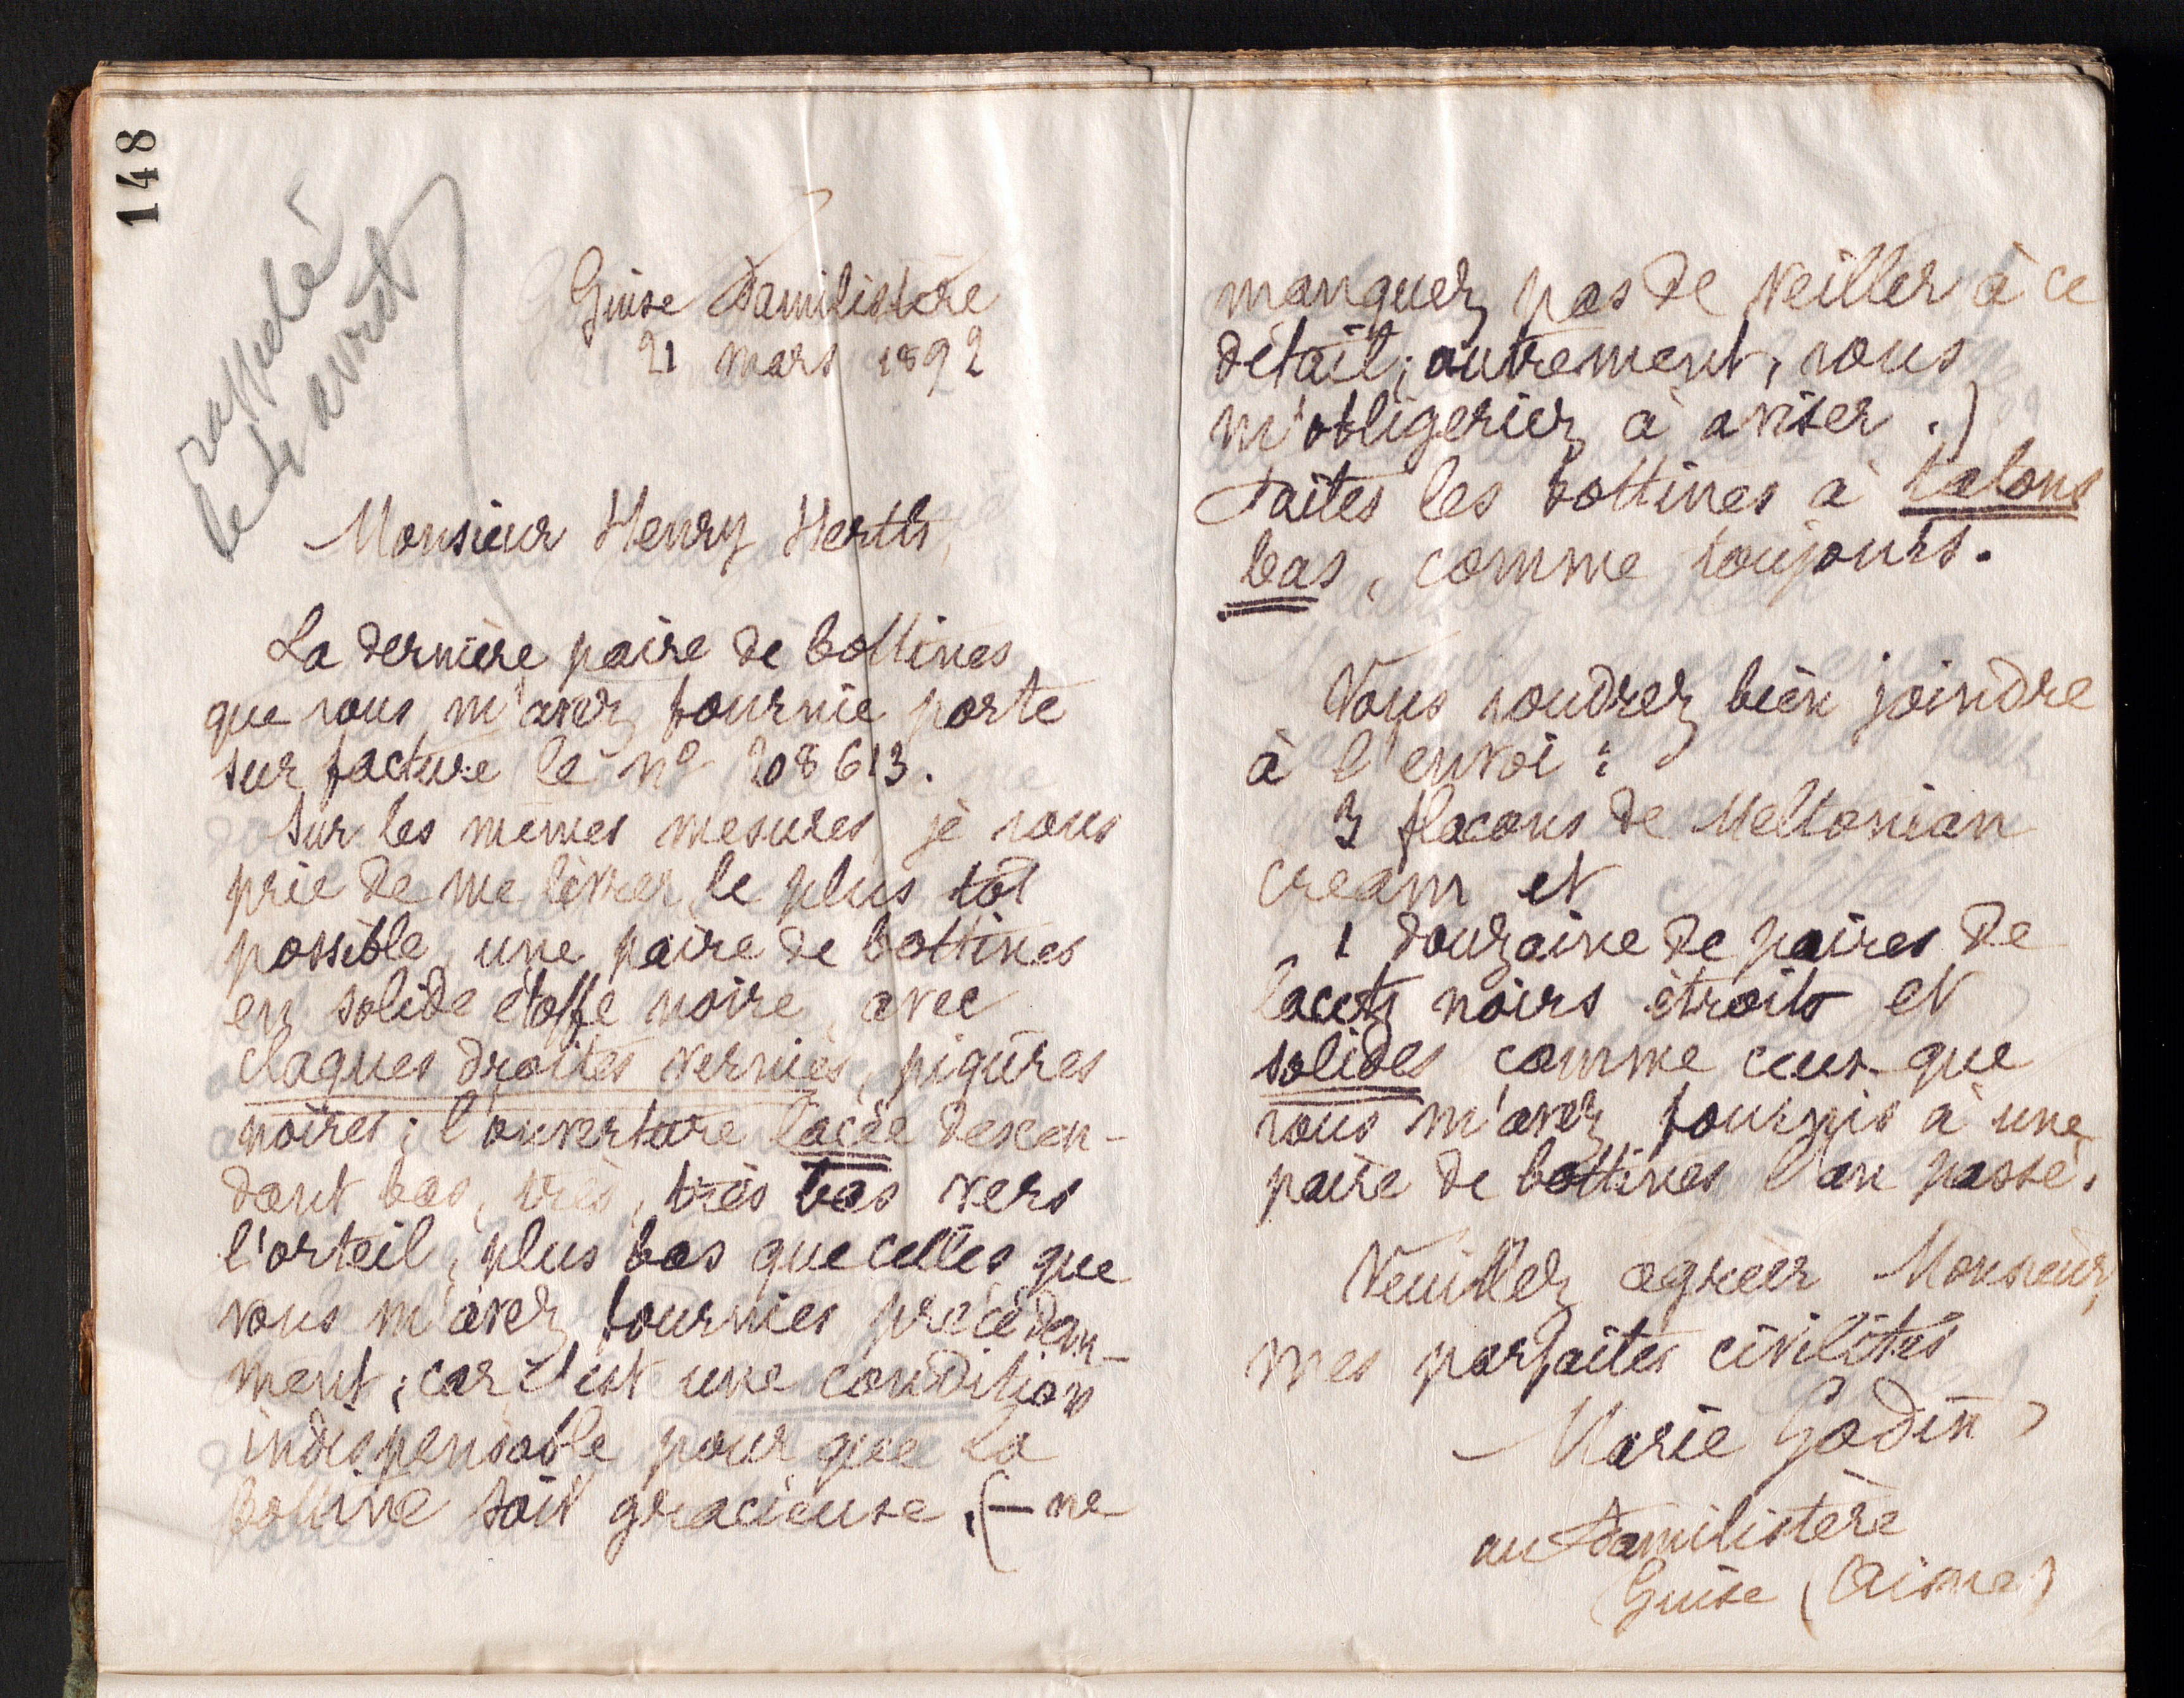 148
rappelé
le 4 avril
Guise Familistère
21 mars 1892
Monsieur Henry Herth,
La dernière paire de bottines
que vous m'avez fournie porte
sur facture le nº 208613.
Sur les mêmes mesures, je vous
prie de me livrer le plus tôt
possible une paire de bottines
en solide étoffe noire, avec
claques droites vernies, piqûres
noires; l'ouverture lacée descen-
dant bas, très, très bas vers
l'orteil, plus bas que celles que
vous m'avez fournies précédem-
ment; car c'est une condition
indispensable pour que la
bottine soit gracieuse. (— ne
manquez pas de veiller à ce
détail; autrement, vous
m'obligeriez à aviser.)
Faites les bottines à talons
bas, comme toujours.
Vous voudrez bien joindre
à l'envoi :
3 flacons de Meltonian
cream et
1 douzaine de paires de
lacets noirs étroits et
solides comme ceux que
vous m'avez fournis à une
paire de bottines l'an passé.
Veuillez agréer Monsieur,
mes parfaites civilités
Marie Godin
au Familistère
Guise (Aisne)